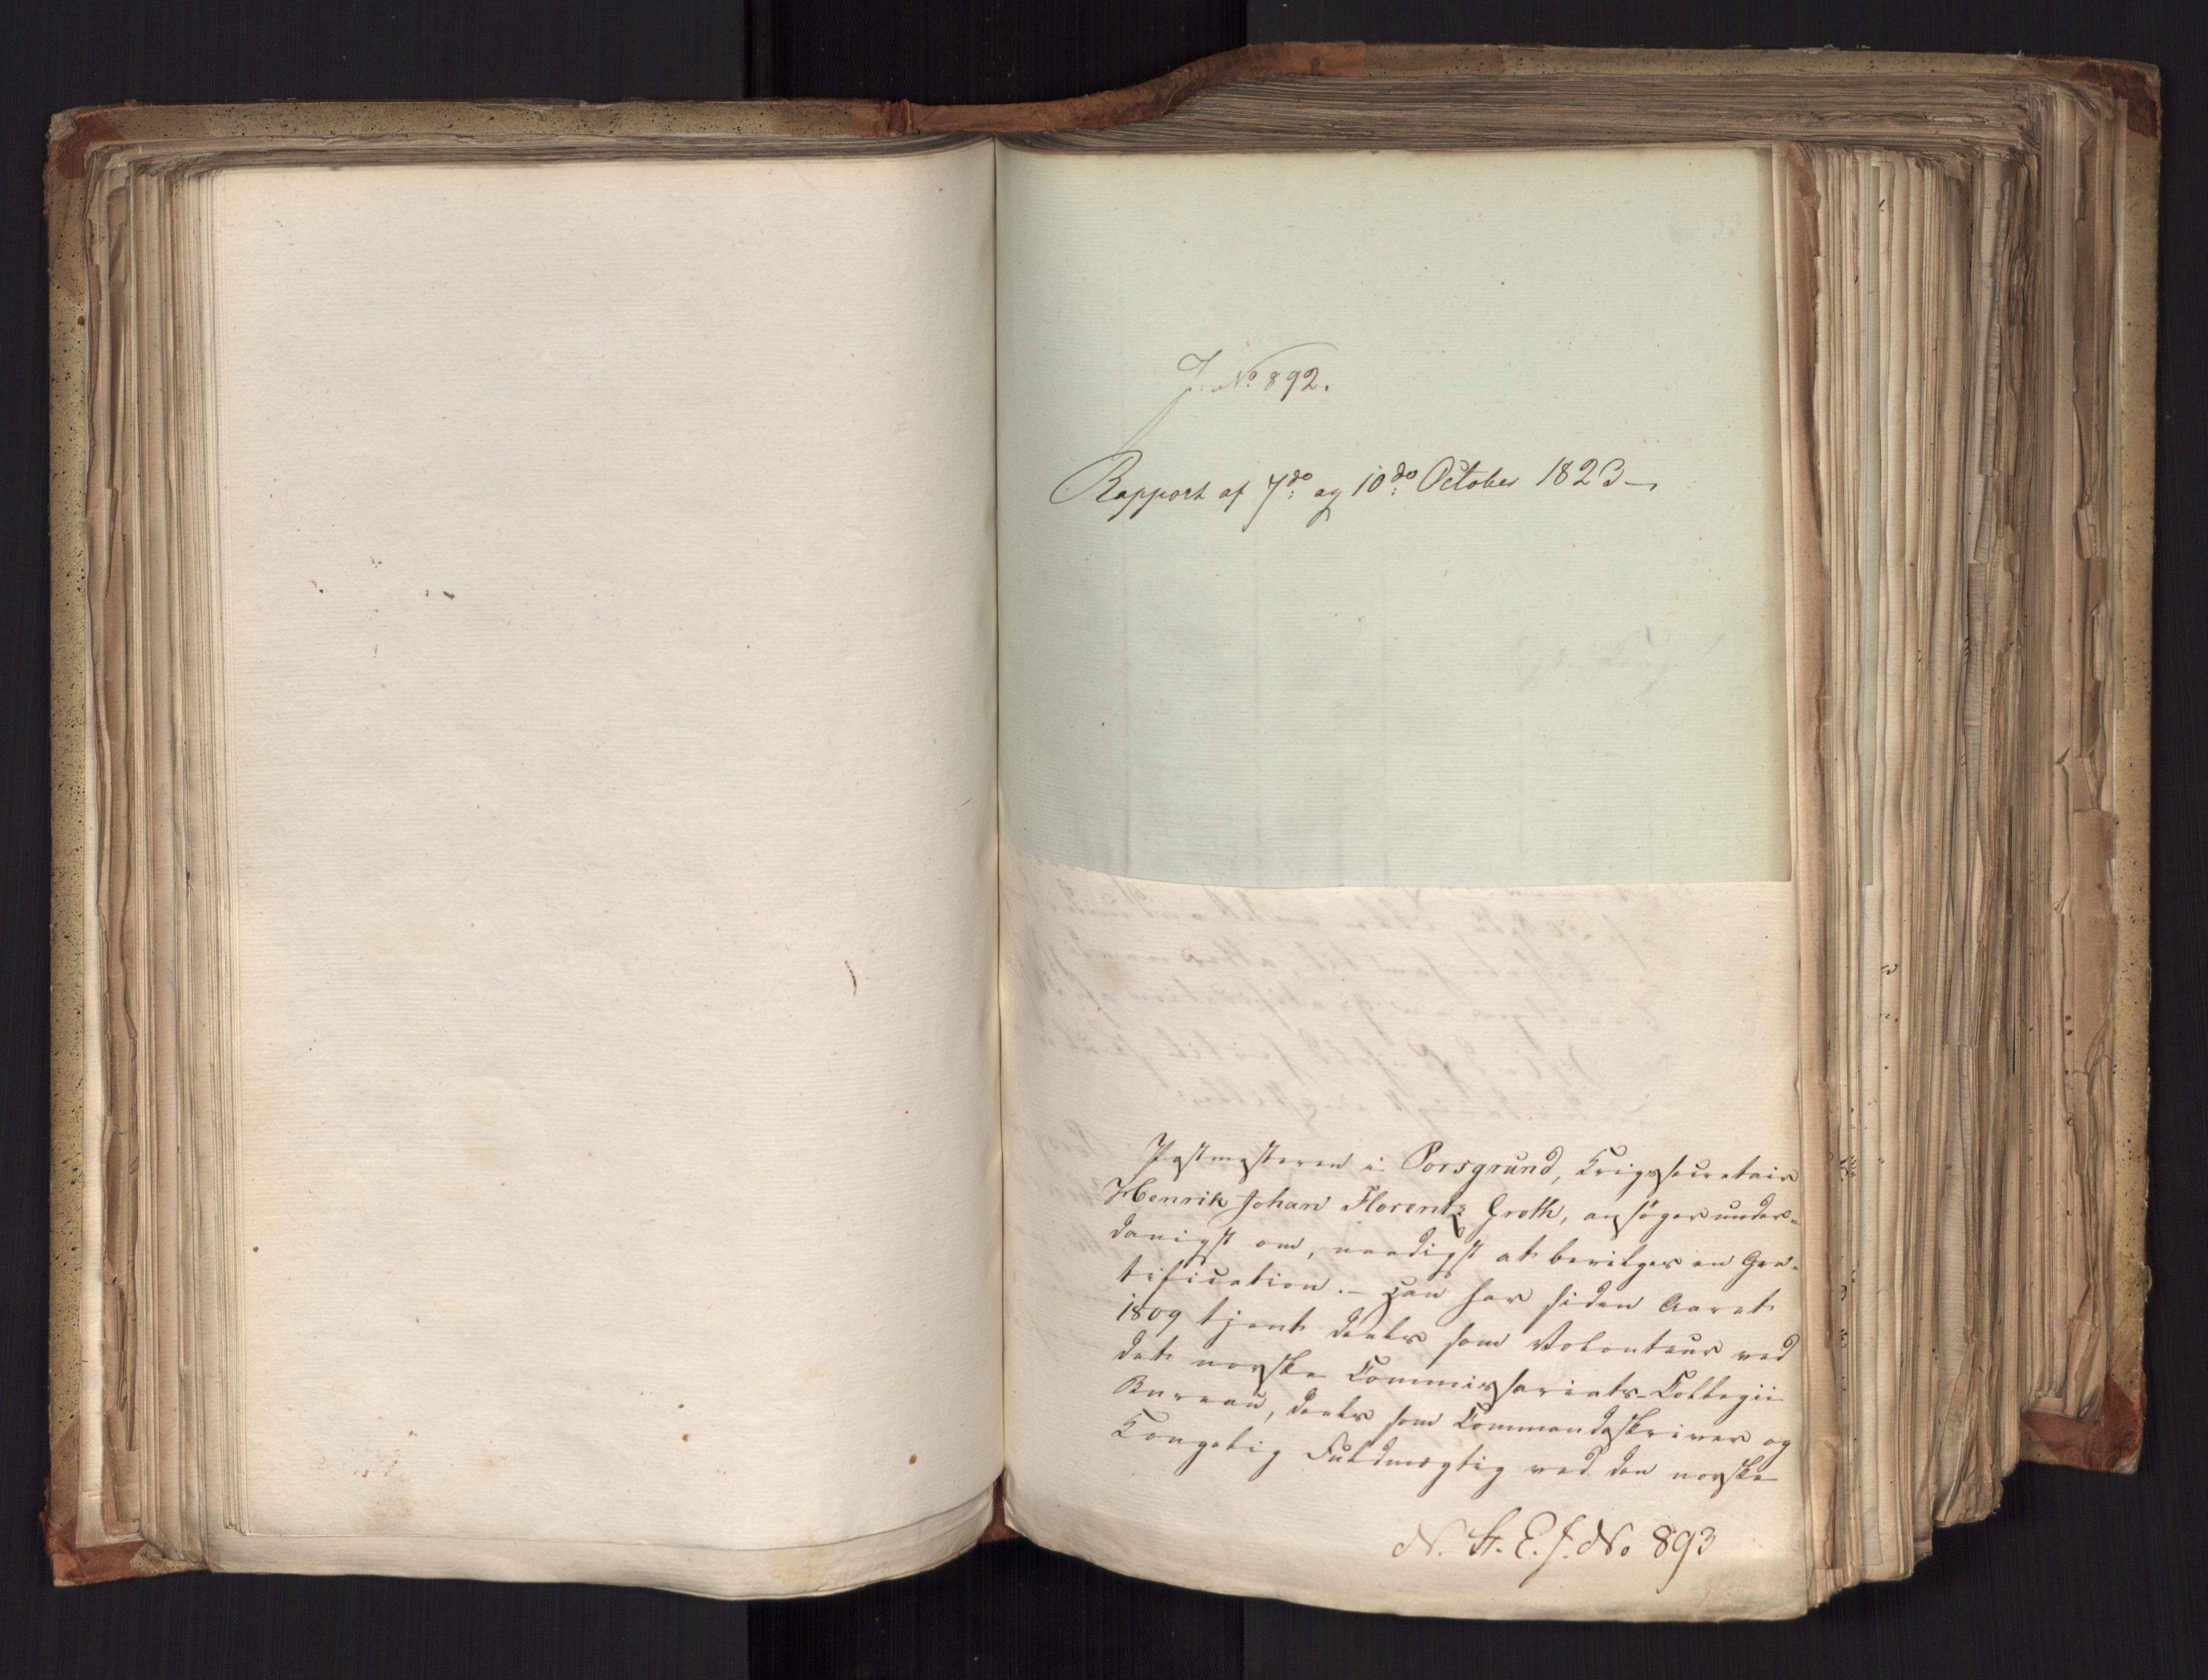 J. No 892.
Rapport af 7de og 10de October 1823 –
Postmesteren i Porsgrund, Krigssecretair
Henrik Johan Florentz Groth, ansöger under-
danigst om, naadigst at bevilges en Gra-
tification. – Han har siden Aaret
1809 tjent deels som Volonteur ved
det norske Commissariats-Collegii
Bureau, deels som Commandoskriver og
Kongelig Fuldmægtig ved den norske
N. St. E. J. No 893